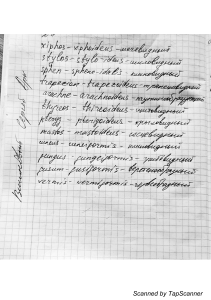 xiphos - xiphoideus - мечевидный
stylos - styloideus - шиловидный
sphen - spheno-idalis - клиновидный
trapezion - trapezoideus - трапециевидный
arachne - arachnoideus - паутинообразный
thyreos - thireoideus - щитовидный
pteryg - pterigoideus - крыловидный
mastos - mastoideus - сосцевидный
cuneus - cuneiformis - клиновидный
fungus - fungiformis - грибовидный
fusum - fusiformis - веретенообразный
vermis - vermiformis - червеобразный
Scanned by TapScanner